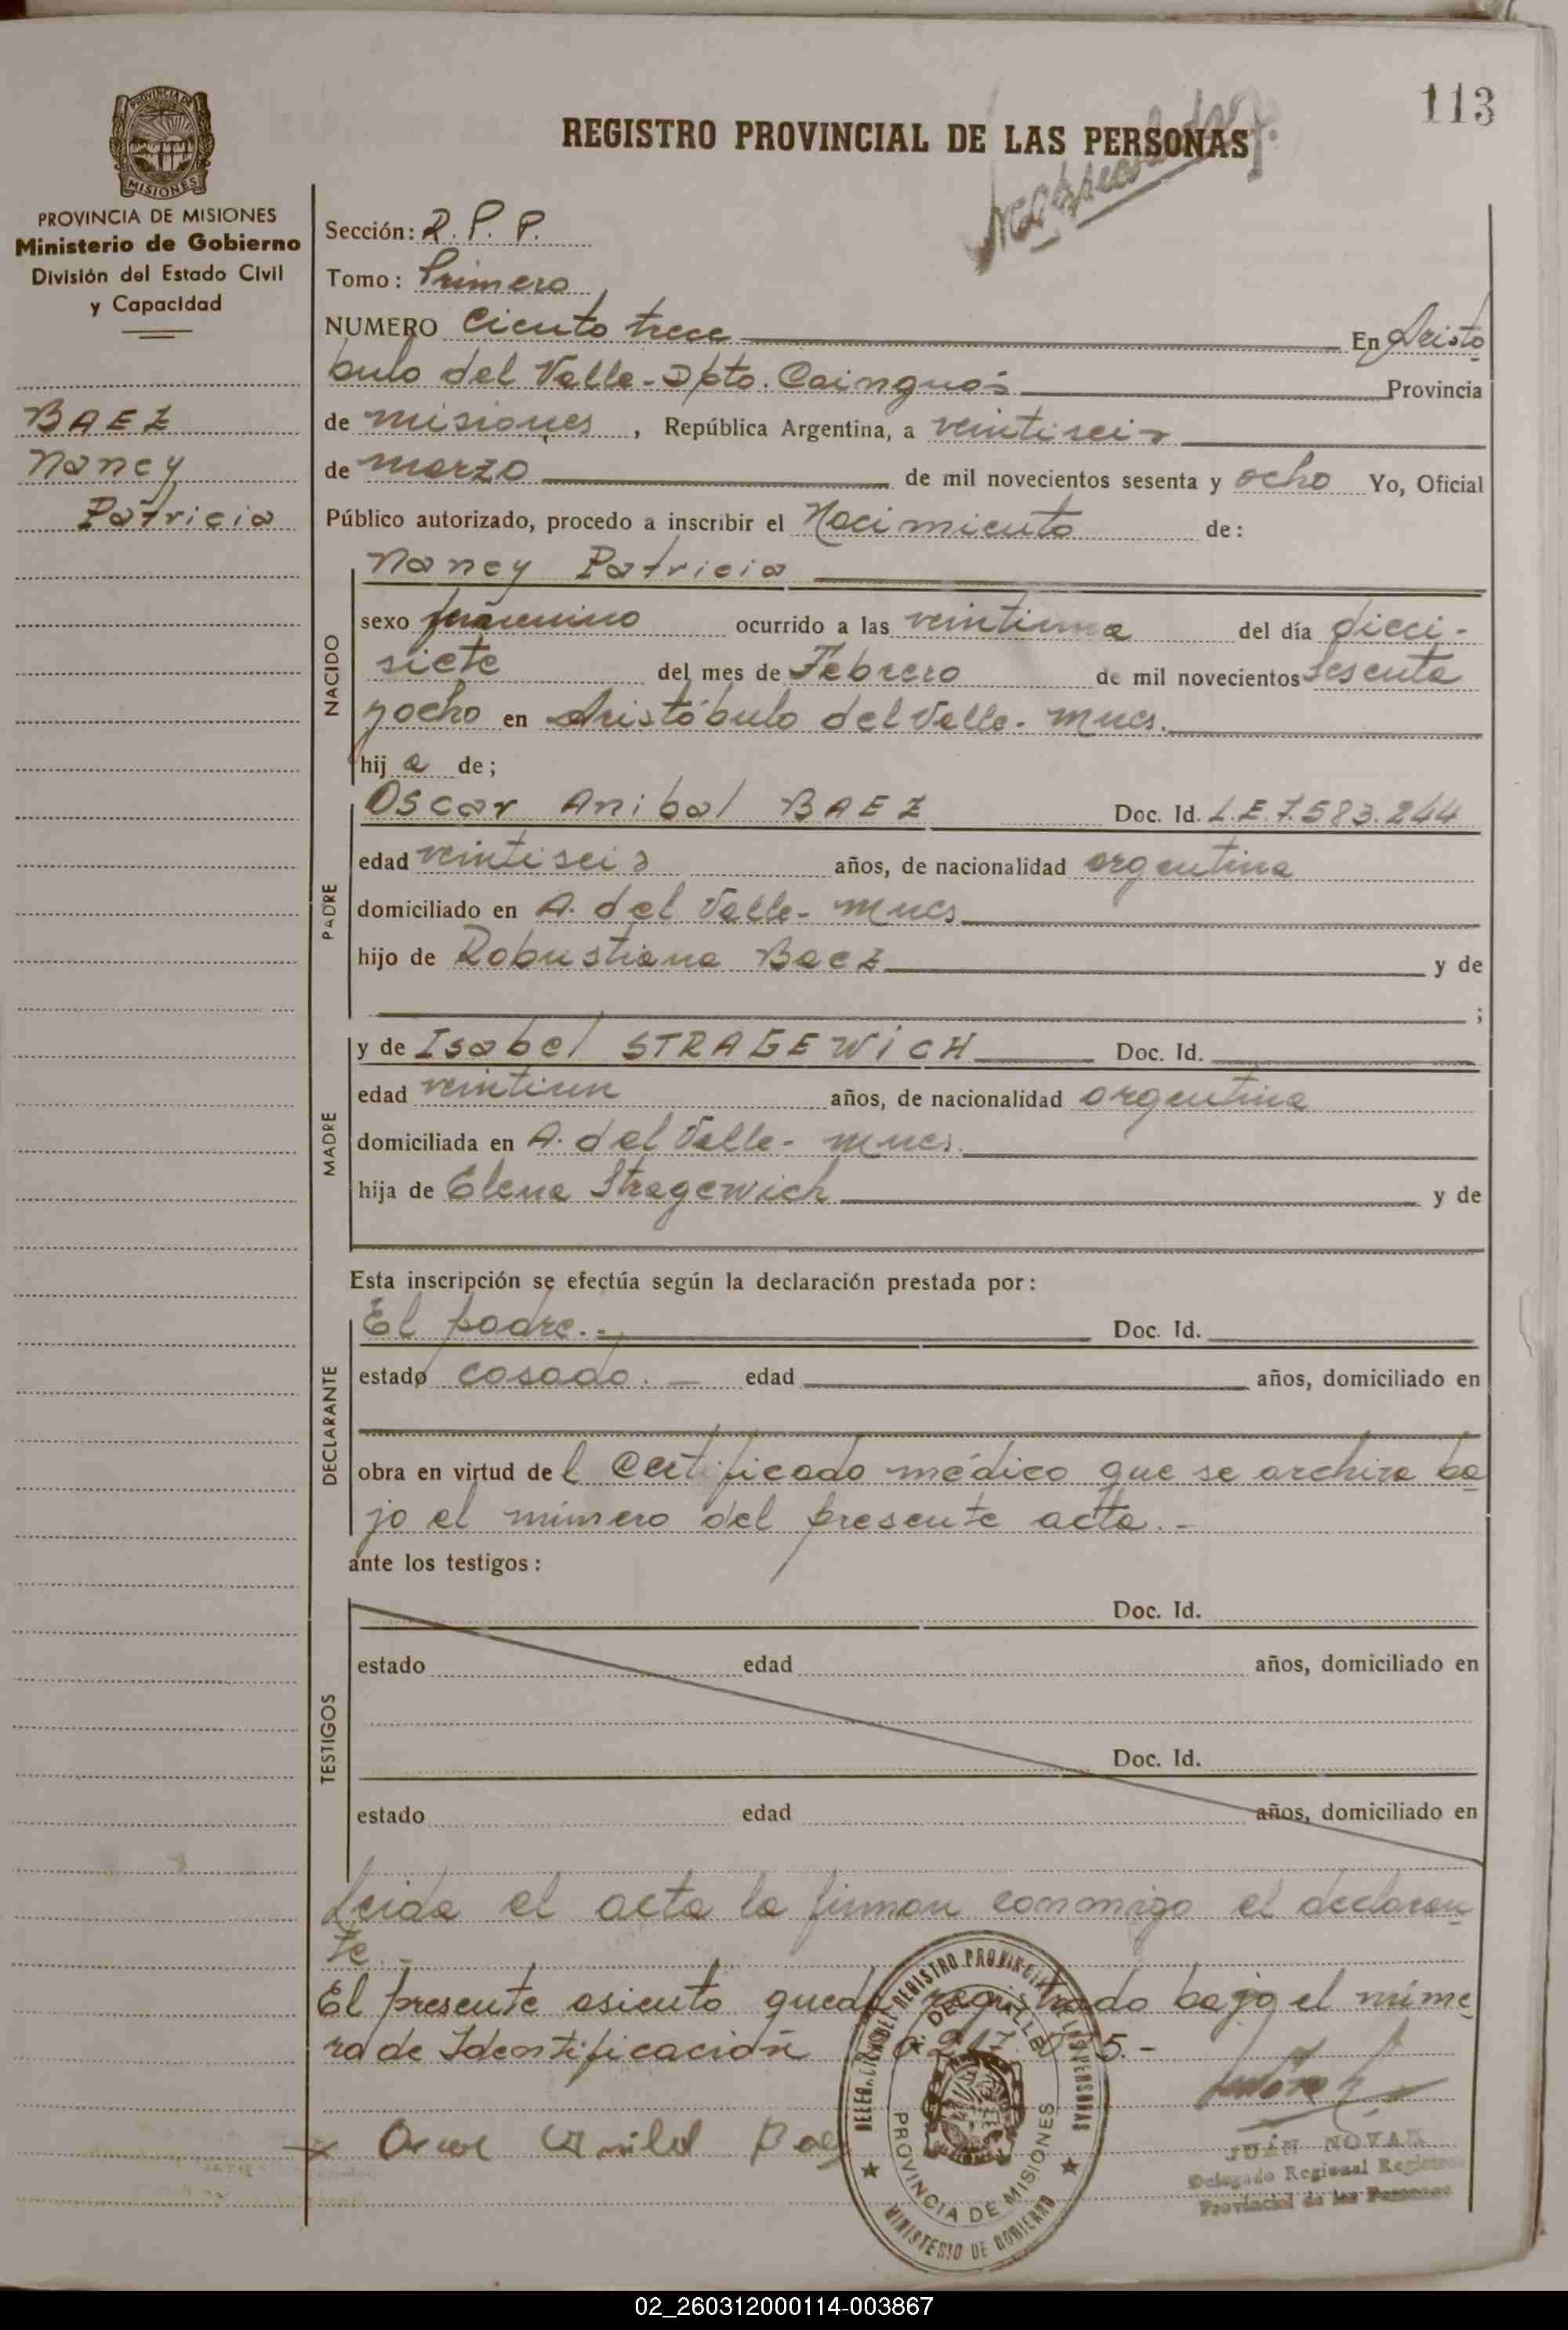 113
REGISTRO PROVINCIAL DE LAS PERSONAS
PROVINCIA DE
MISIONES
PROVINCIA DE MISIONES
Ministerio de Gobierno
División del Estado Civil
y Capacidad
BAEZ
Nancy
Patricia
Sección: R. P. P.
Tomo: Primero
NUMERO Ciento trece En Aristó
bulo del Valle - Dpto. Cainguás Provincia
de misiones, República Argentina, a veintiseis
de marzo de mil novecientos sesenta y ocho Yo, Oficial
Público autorizado, procedo a inscribir el Nacimiento de:
NACIDO
Nancy Patricia
sexo femenino ocurrido a las veintiuna del día dieci-
siete del mes de Febrero de mil novecientos sesenta
y ocho en Aristóbulo del Valle - Mnes.
hij a de;
PADRE
Oscar Anibal BAEZ Doc. Id. L.E. 7.583.244
edad veintiseis años, de nacionalidad argentina
domiciliado en A. del Valle - Mnes
hijo de Robustiana Baez y de
;
MADRE
y de Isabel STRAGEWICH Doc. Id.
edad veintiun años, de nacionalidad argentina
domiciliada en A. del Valle - Mnes.
hija de Elena Stragewich y de
Esta inscripción se efectúa según la declaración prestada por:
DECLARANTE
El padre.- Doc. Id.
estado casado.- edad años, domiciliado en
obra en virtud de l Certificado médico que se archiva ba
jo el número del presente acta.-
ante los testigos:
TESTIGOS
Doc. Id.
estado edad años, domiciliado en
Doc. Id.
estado edad años, domiciliado en
Leida el acta la firman conmigo el declaran
te.-
El presente asiento queda registrado bajo el núme
ro de Identificación
x Oscar Anibal Baez
REGISTRO PROVINCIAL DE LAS PERSONAS
A. DEL VALLE
PROVINCIA DE MISIONES
MINISTERIO DE GOBIERNO
JUAN NOVAK
Delegado Regional Registro
Provincial de las Personas
02_260312000114-003867